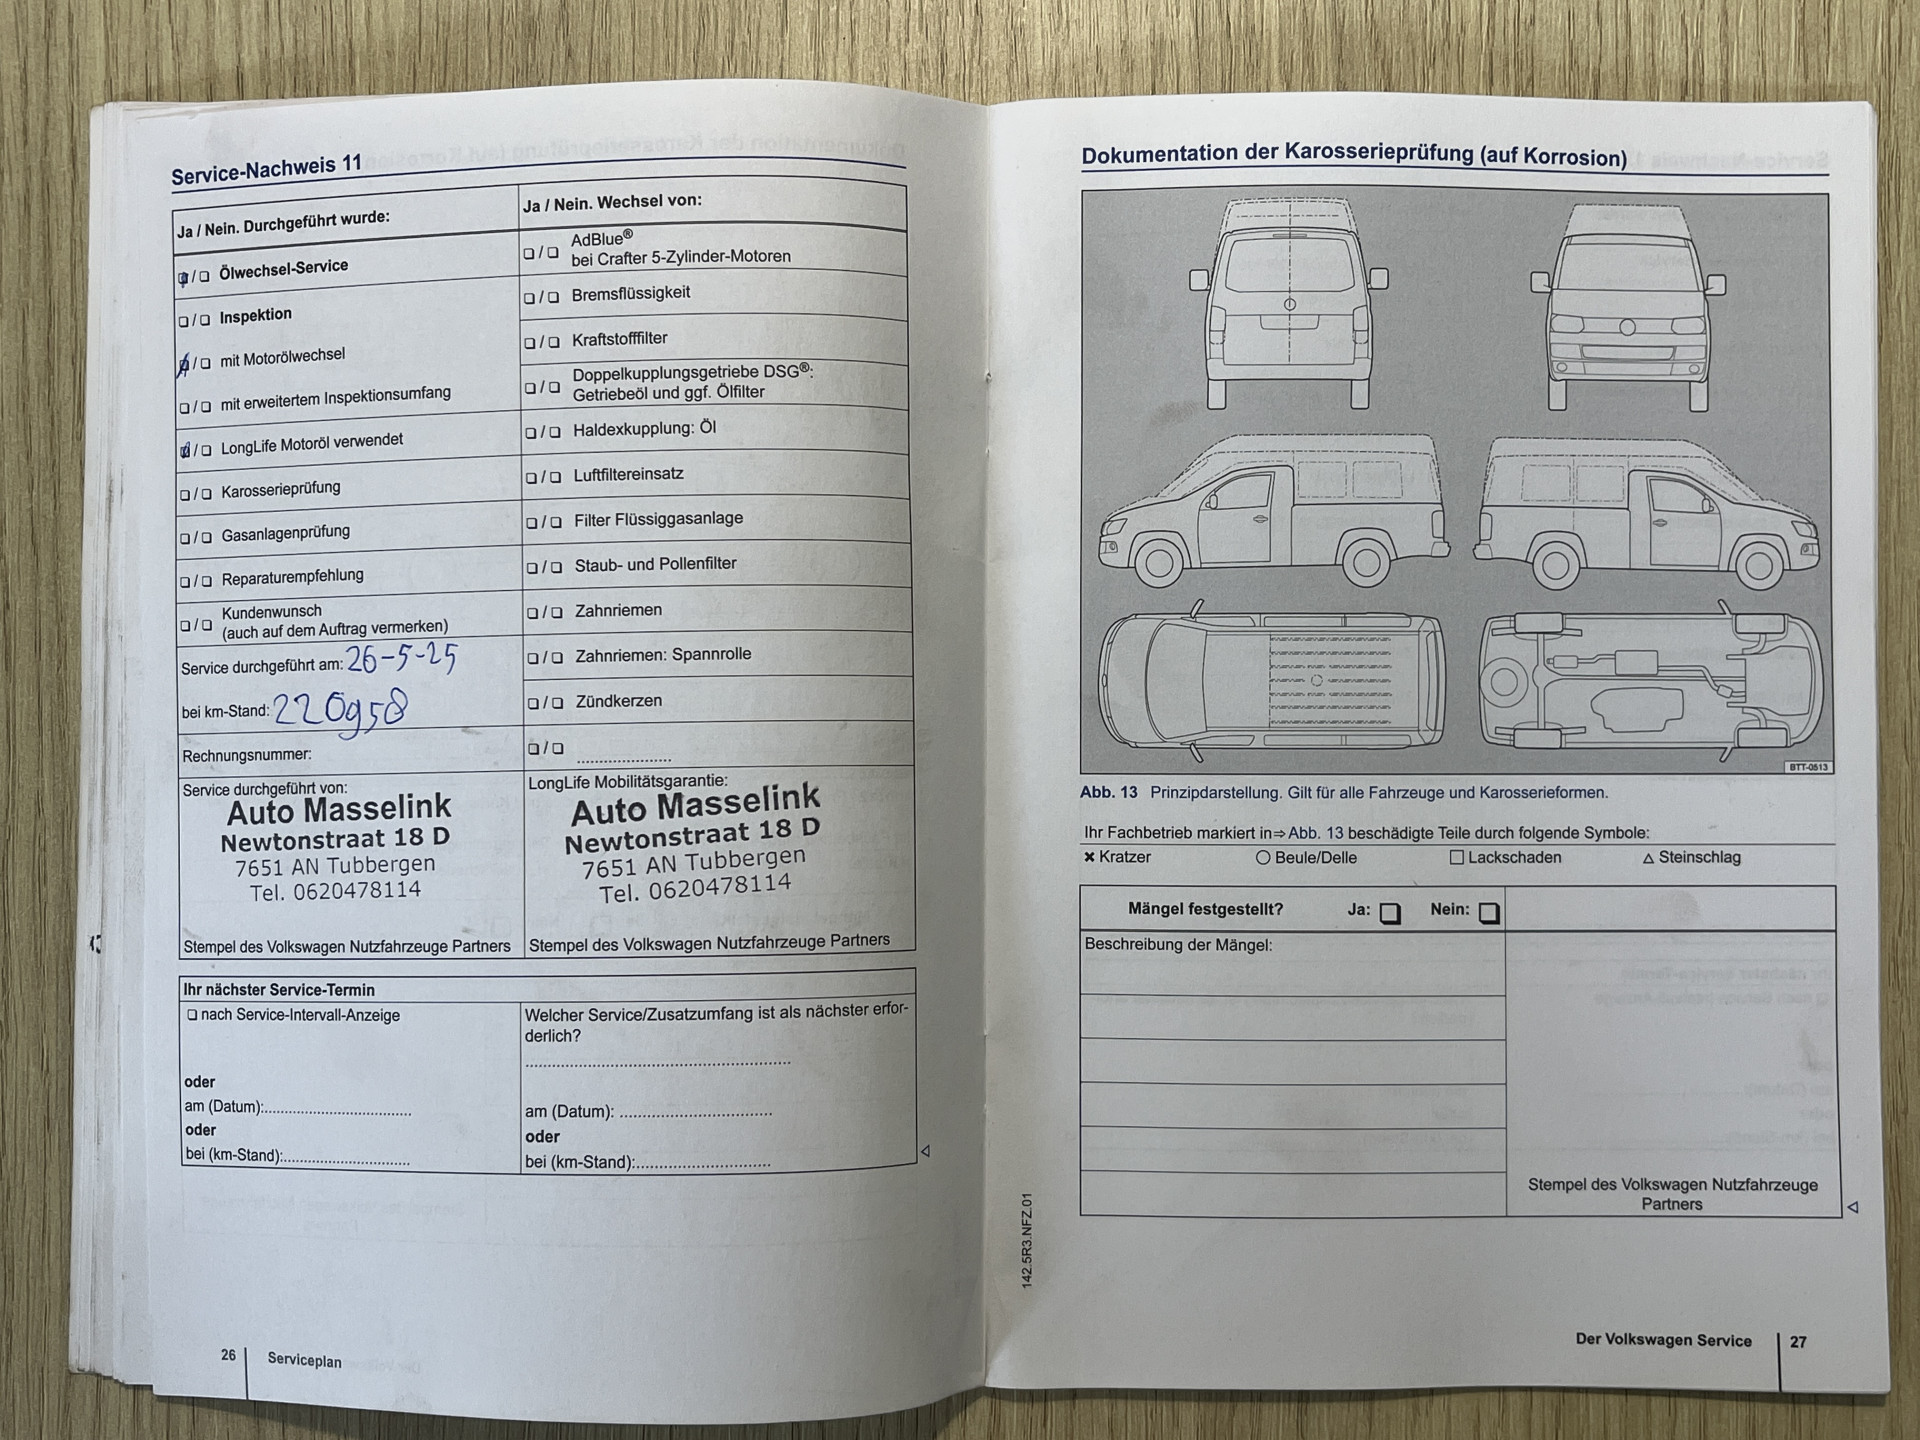 Service-Nachweis 11
Ja / Nein. Durchgeführt wurde:
❏/❏ Ölwechsel-Service
❏/❏ Inspektion
❏/❏ mit Motorölwechsel
❏/❏ mit erweitertem Inspektionsumfang
❏/❏ LongLife Motoröl verwendet
❏/❏ Karosserieprüfung
❏/❏ Gasanlagenprüfung
❏/❏ Reparaturempfehlung
❏/❏ Kundenwunsch
(auch auf dem Auftrag vermerken)
Service durchgeführt am: 26-5-25
bei km-Stand: 220958
Rechnungsnummer:
Ja / Nein. Wechsel von:
❏/❏ AdBlue®
bei Crafter 5-Zylinder-Motoren
❏/❏ Bremsflüssigkeit
❏/❏ Kraftstofffilter
❏/❏ Doppelkupplungsgetriebe DSG®:
Getriebeöl und ggf. Ölfilter
❏/❏ Haldexkupplung: Öl
❏/❏ Luftfiltereinsatz
❏/❏ Filter Flüssiggasanlage
❏/❏ Staub- und Pollenfilter
❏/❏ Zahnriemen
❏/❏ Zahnriemen: Spannrolle
❏/❏ Zündkerzen
❏/❏ ......................
Service durchgeführt von:
Auto Masselink
Newtonstraat 18 D
7651 AN Tubbergen
Tel. 0620478114
Stempel des Volkswagen Nutzfahrzeuge Partners
LongLife Mobilitätsgarantie:
Auto Masselink
Newtonstraat 18 D
7651 AN Tubbergen
Tel. 0620478114
Stempel des Volkswagen Nutzfahrzeuge Partners
Ihr nächster Service-Termin
❏ nach Service-Intervall-Anzeige
oder
am (Datum):..................................
oder
bei (km-Stand):.............................
Welcher Service/Zusatzumfang ist als nächster erfor-
derlich?
............................................................
am (Datum): ..................................
oder
bei (km-Stand):..............................
26 Serviceplan
Dokumentation der Karosserieprüfung (auf Korrosion)
BTT-0513
Abb. 13 Prinzipdarstellung. Gilt für alle Fahrzeuge und Karosserieformen.
Ihr Fachbetrieb markiert in⇒Abb. 13 beschädigte Teile durch folgende Symbole:
✖ Kratzer ○ Beule/Delle □ Lackschaden △ Steinschlag
Mängel festgestellt? Ja: ❏ Nein: ❏
Beschreibung der Mängel:
Stempel des Volkswagen Nutzfahrzeuge
Partners
142.5R3.NFZ.01
Der Volkswagen Service 27